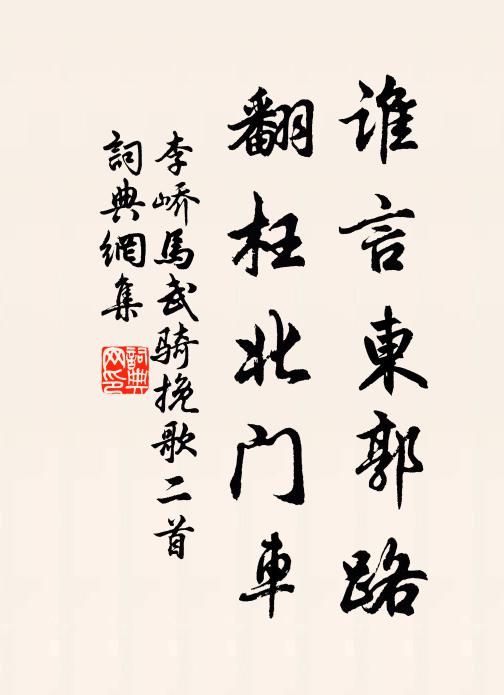 谁言東郭路
翻枉北门車
李嶠馬武骑挽歌二首
詞典網集
詞典網印